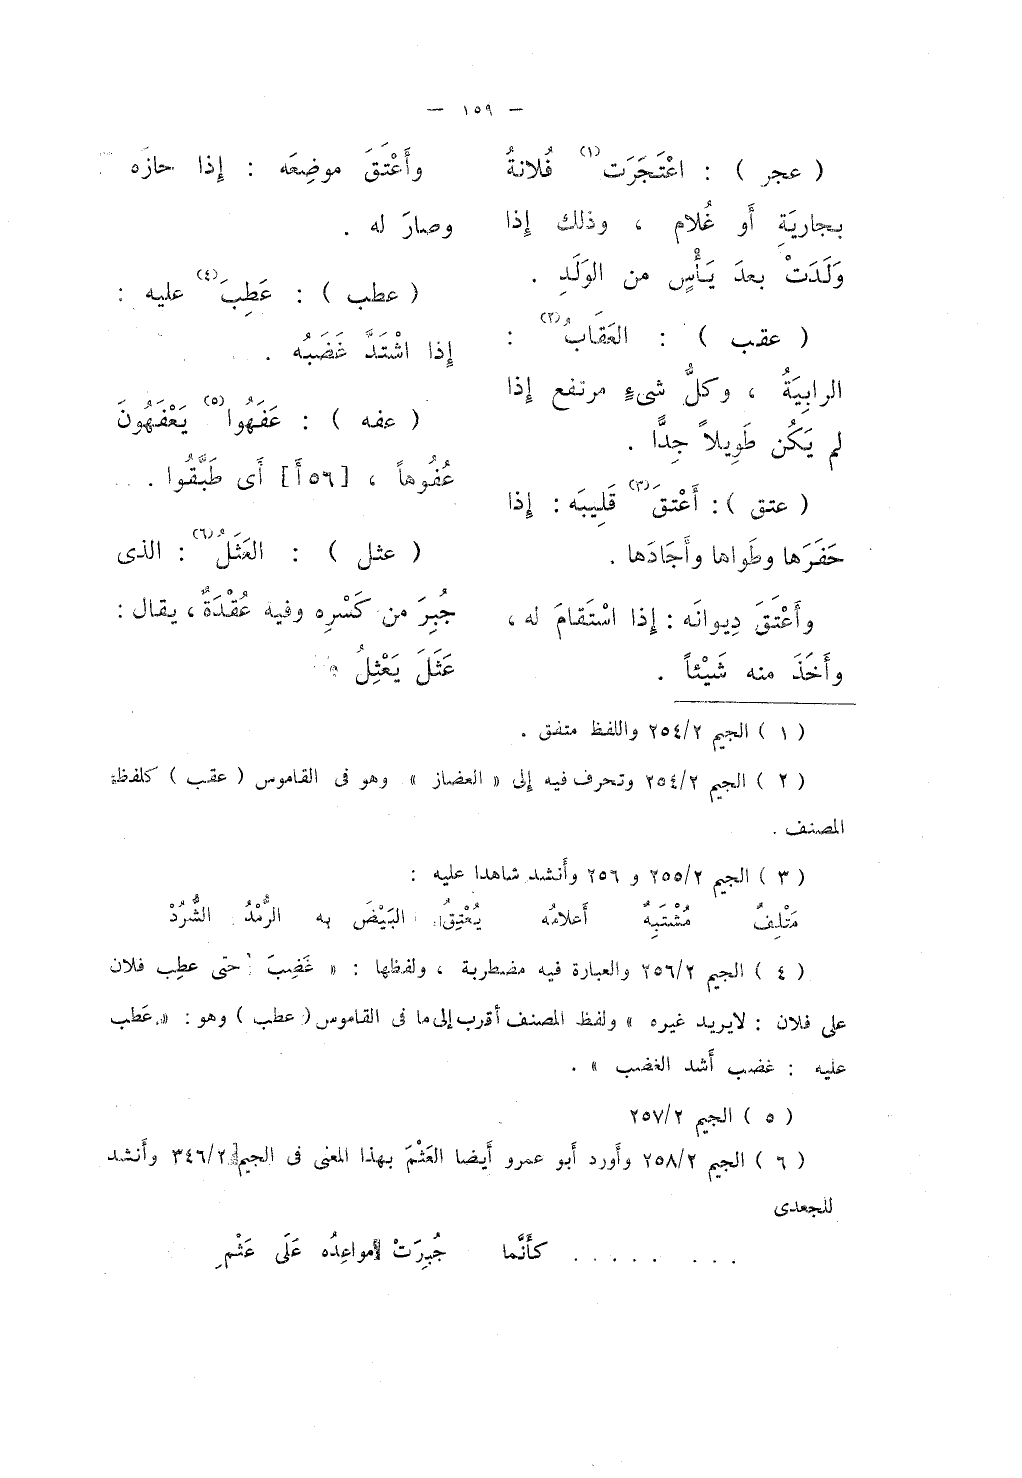 — ١٥٩ —
( عجر ) : اعْتَجَرَت(١) فُلانةُ
بجاريَةِ أَو غُلام ، وذلك إِذا
وَلَدَتْ بعدَ يَأْسٍ من الوَلَدِ .
( عقب ) : العَقَابُ(٢) :
الرابِيَةُ ، وكلُّ شىءٍ مرتفع إِذا
لم يَكُن طَوِيلاً جِدًّا .
( عتق ) : أَعْتقَ(٣) قَلِيبَه : إِذا
حَفَرَها وطَواها وأَجَادَها .
وأَعْتَقَ دِيوانَه : إِذا اسْتَقامَ له ،
وأَخَذَ منه شَيْئاً .
وأَعْتَقَ موضِعَه : إِذا حازَه
وصارَ له .
( عطب ) : عَطِبَ(٤) عليه :
إِذا اشْتَدَّ غَضَبُه .
( عفه ) : عَفَهُوا(٥) يَعْفَهُونَ
عُفُوهاً ، [٥٦أ] أَى طَبَّقُوا .
( عثل ) : العَثَلُ(٦) : الذى
جُبِرَ من كَسْرِه وفيه عُقْدَةٌ ، يقال :
عَثَلَ يَعْثِلُ
( ١ ) الجيم ٢٥٤/٢ واللفظ متفق .
( ٢ ) الجيم ٢٥٤/٢ وتحرف فيه إِلى « العضاز » وهو فى القاموس ( عقب ) كلفظ
المصنف .
( ٣ ) الجيم ٢٥٥/٢ و ٢٥٦ وأَنشد شاهدا عليه :
مَتْلِفٌ مُشْتَبِهٌ أَعلامُه يُعْتِقُ البَيْضَ به الرُّمْدُ الشُّرُدْ
( ٤ ) الجيم ٢٥٦/٢ والعبارة فيه مضطربة ، ولفظها : « غَضِبَ حتى عطِب فلان
على فلان : لايريد غيره » ولفظ المصنف أقرب إلى ما فى القاموس ( عطب ) وهو : « عَطب
عليه : غضب أَشد الغضب » .
( ٥ ) الجيم ٢٥٧/٢
( ٦ ) الجيم ٢٥٨/٢ وأَورد أَبو عمرو أَيضا العَثْمَ بهذا المعنى فى الجيم ٣٤٦/٢ وأَنشد
للجعدى
. . . . . . . . كأَنَّما جُبِرَتْ مواعِدُه عَلَى عَثْمِ